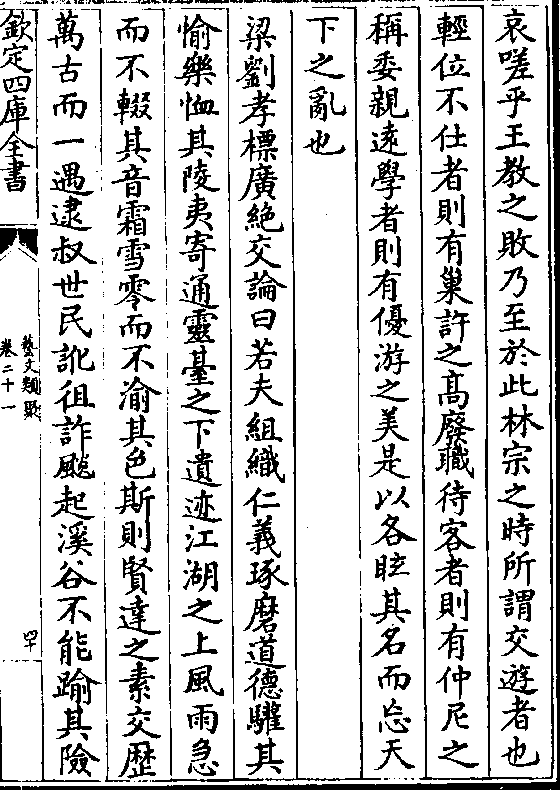 哀嗟乎王教之敗乃至於此林宗之時所謂交遊者也
輕位不仕者則有巢許之髙廢職待客者則有仲尼之
稱委親逺學者則有優游之美是以各眩其名而忘天
下之亂也
梁劉孝標廣絶交論曰若夫組織仁義琢磨道德驩其
愉樂恤其陵夷寄通靈臺之下遺迹江湖之上風雨急
而不輟其音霜雪零而不渝其色斯則賢達之素交歴
萬古而一遇逮叔世民訛狙詐飈起溪谷不能踰其險
欽定四庫全書
藝文類聚
卷二十一
四十